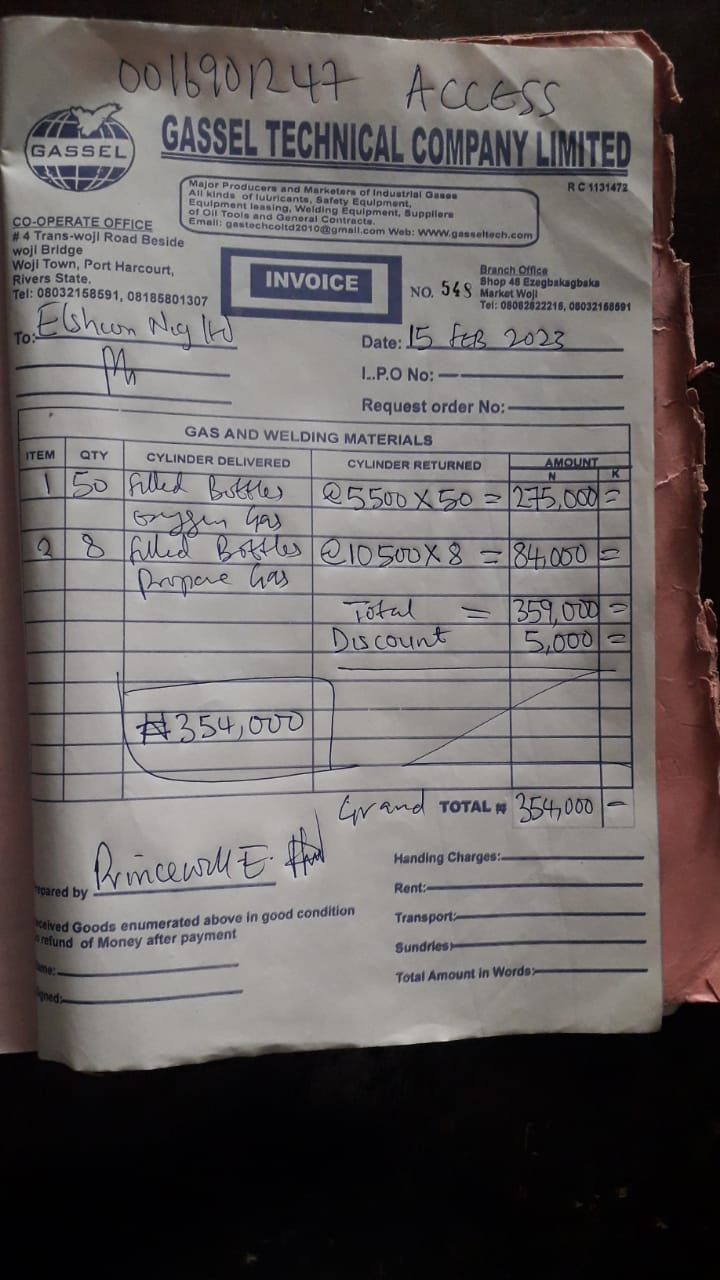 0016901247 ACCESS
GASSEL
GASSEL TECHNICAL COMPANY LIMITED
R C 1131472
Major Producers and Marketers of Industrial Gases
All kinds of lubricants, Safety Equipment,
Equipment leasing, Welding Equipment, Suppliers
of Oil Tools and General Contracts.
Email: gastechcoltd2010@gmail.com Web: www.gasseltech.com
CO-OPERATE OFFICE
# 4 Trans-woji Road Beside
woji Bridge
Woji Town, Port Harcourt,
Rivers State.
Tel: 08032158591, 08185801307
INVOICE
NO. 548
Branch Office
Shop 48 Ezegbakagbaka
Market Woji
Tel: 08062622216, 08032158591
To: Nig ltd
Date: 15 FEB 2023
I..P.O No:
Request order No:
GAS AND WELDING MATERIALS
ITEM QTY CYLINDER DELIVERED CYLINDER RETURNED AMOUNT
N K
1 50 filled Bottles @5500 X 50 = 275,000 =
Oxygen Gas
2 8 filled Bottles @10500 X 8 = 84,000 =
Propane Gas
Total = 359,000 =
Discount 5,000 =
₦354,000
Grand TOTAL ₦ 354,000 -
Princewill E.
epared by
Handing Charges:
Rent:
Transport:
Sundries:
Total Amount in Words:
ceived Goods enumerated above in good condition
o refund of Money after payment
ame:
igned: